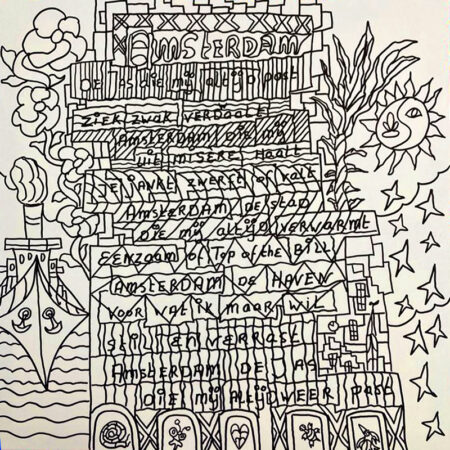 AMSTERDAM
DE JAS die mij altijd past
ZIEK ZWAK VERDOOLD
AMSTERDAM DIE MIJ
UIT MISERE HAALT
JE JANKT ZWERFT OF VALT
AMSTERDAM DE STAD
DIE mij altijd VERWARMT
EENZAAM of Top of the Bill
AMSTERDAM DE HAVEN
VOOR WAT ik MAAR WIL
STIL EN VERRAST
AMSTERDAM DE JAS
DIE mij ALTIJD WEER past